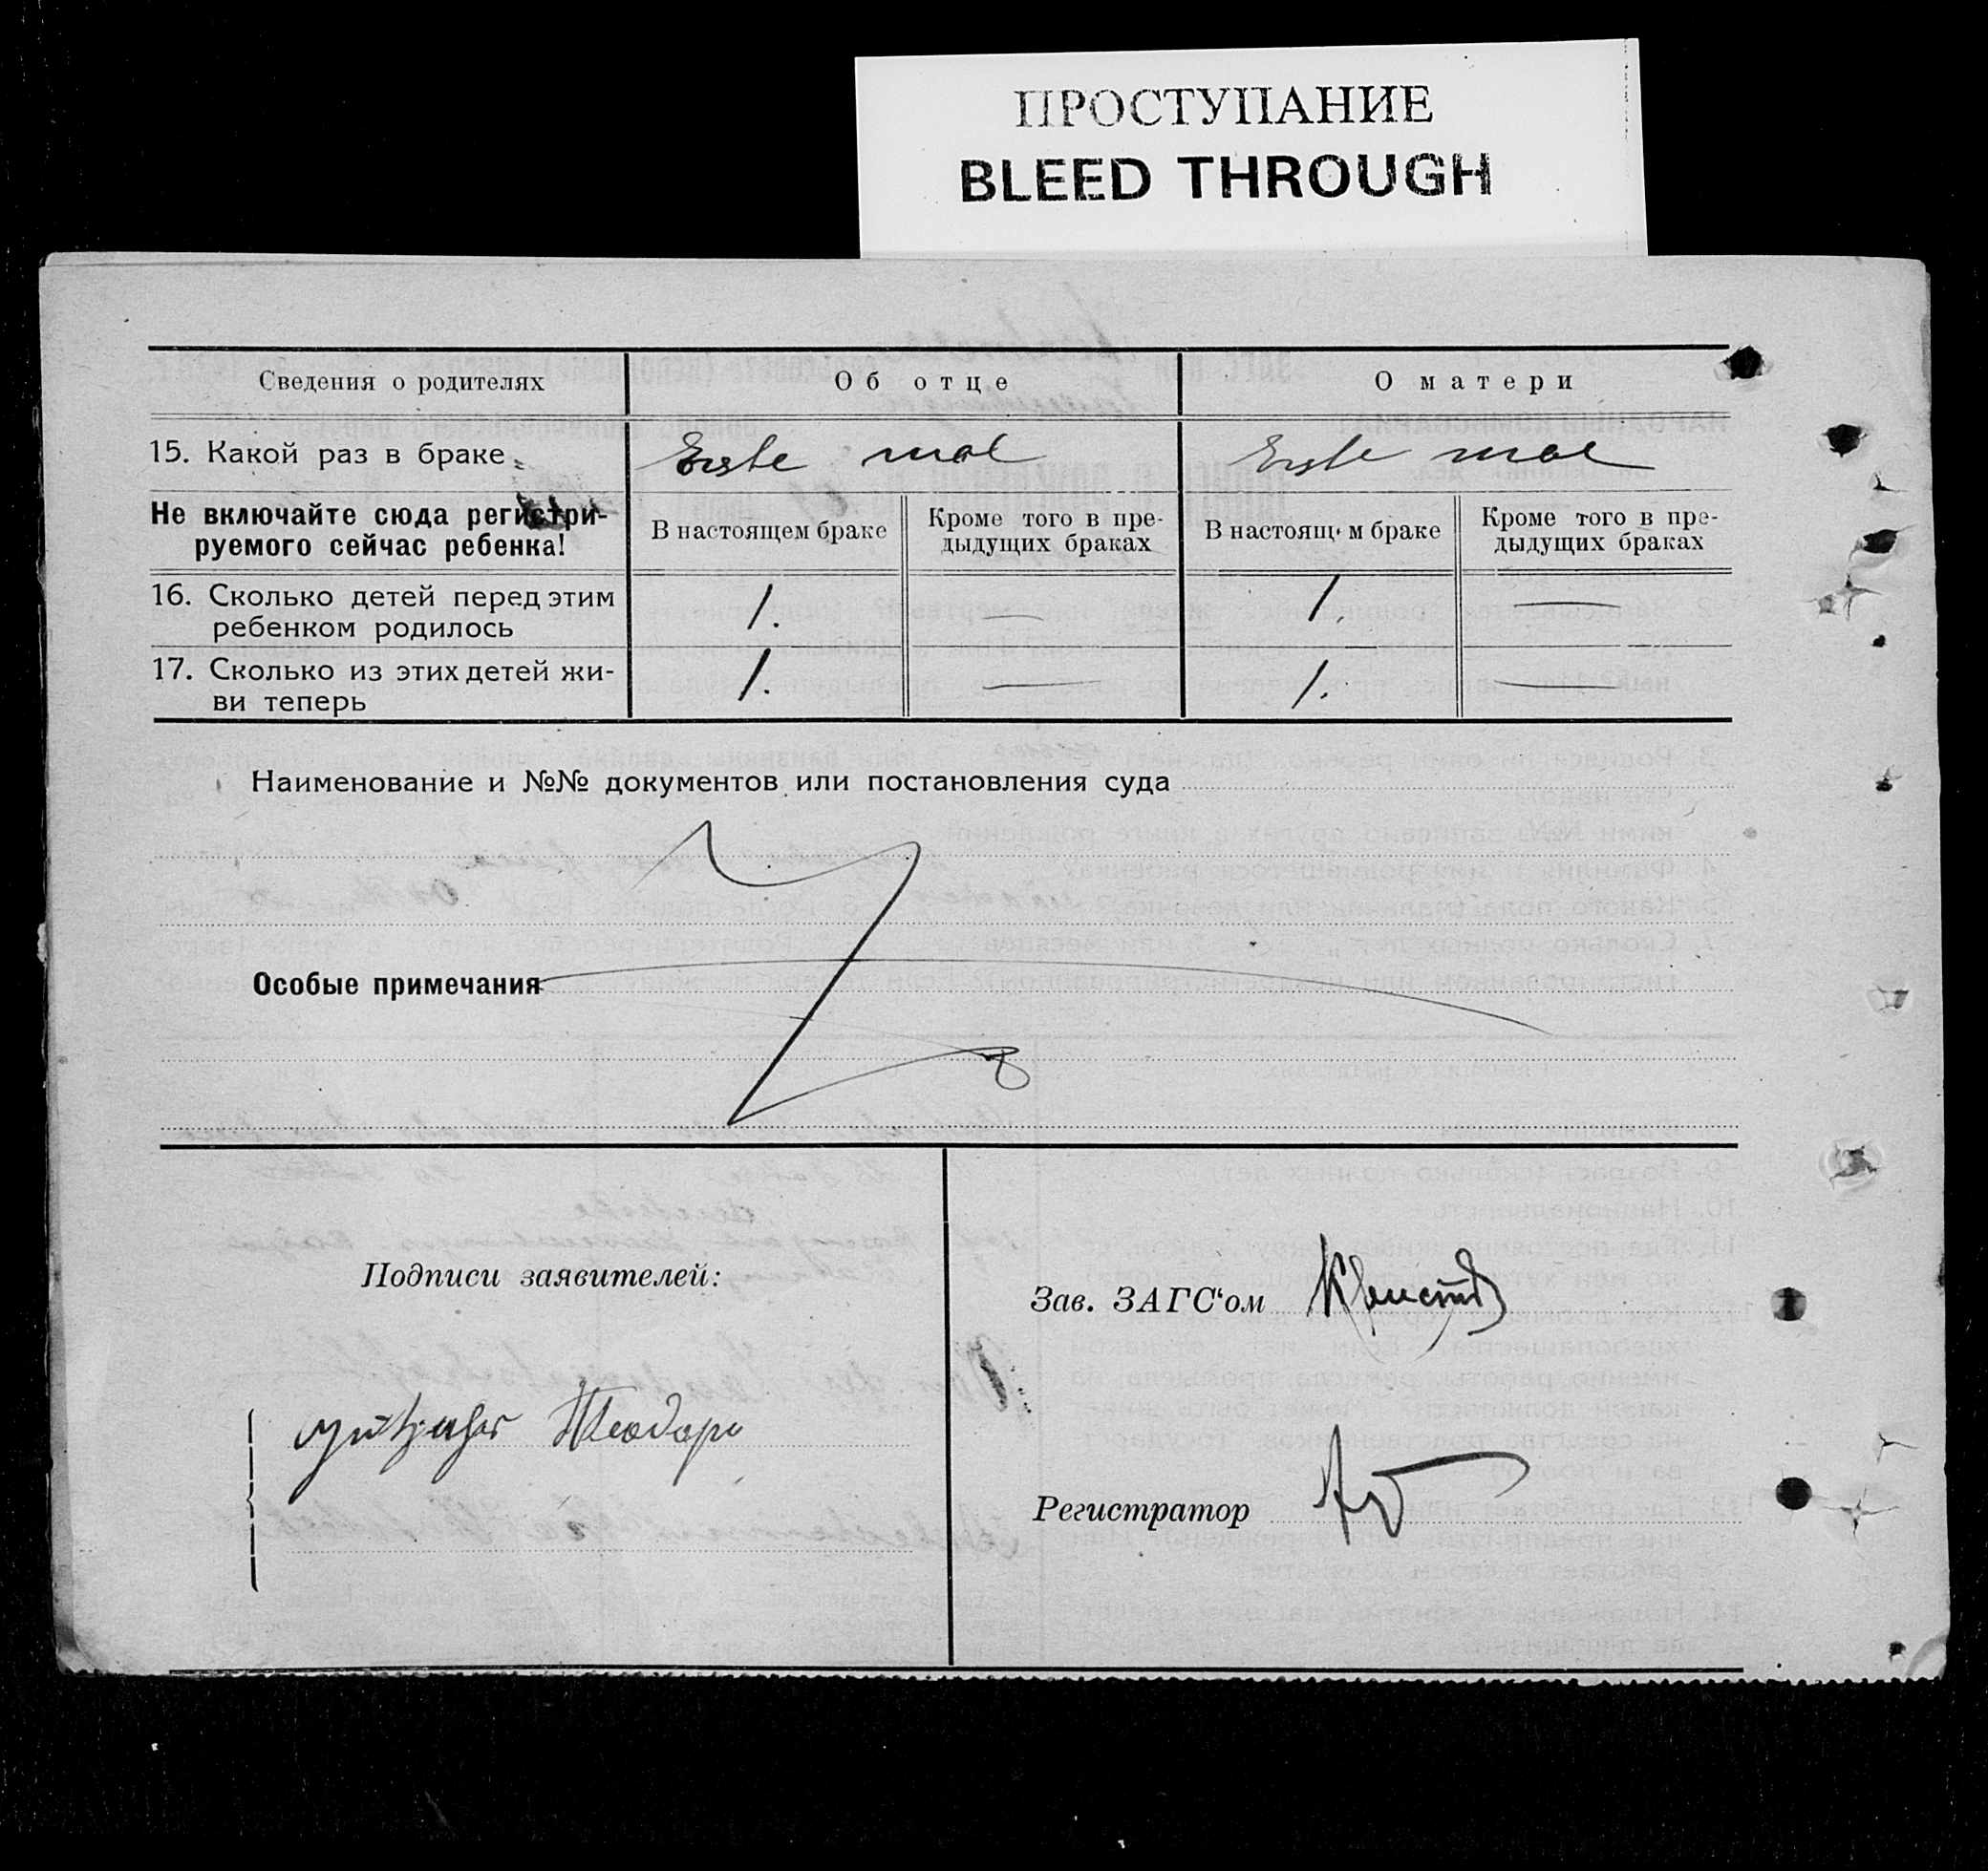 ПРОСТУПАНИЕ
BLEED THROUGH
Сведения о родителях Об отце О матери
15. Какой раз в браке Erste mal Erste mal
Не включайте сюда регистри-
руемого сейчас ребенка!
В настоящем браке
Кроме того в пре-
дыдущих браках
В настоящ м браке
Кроме того в пре-
дыдущих браках
16. Сколько детей перед этим
ребенком родилось
1. — 1. —
17. Сколько из этих детей жи-
ви теперь
1. — 1. —
Наименование и №№ документов или постановления суда
Особые примечания
Подписи заявителей:
Зав. ЗАГС‘ом
Теодор
Регистратор